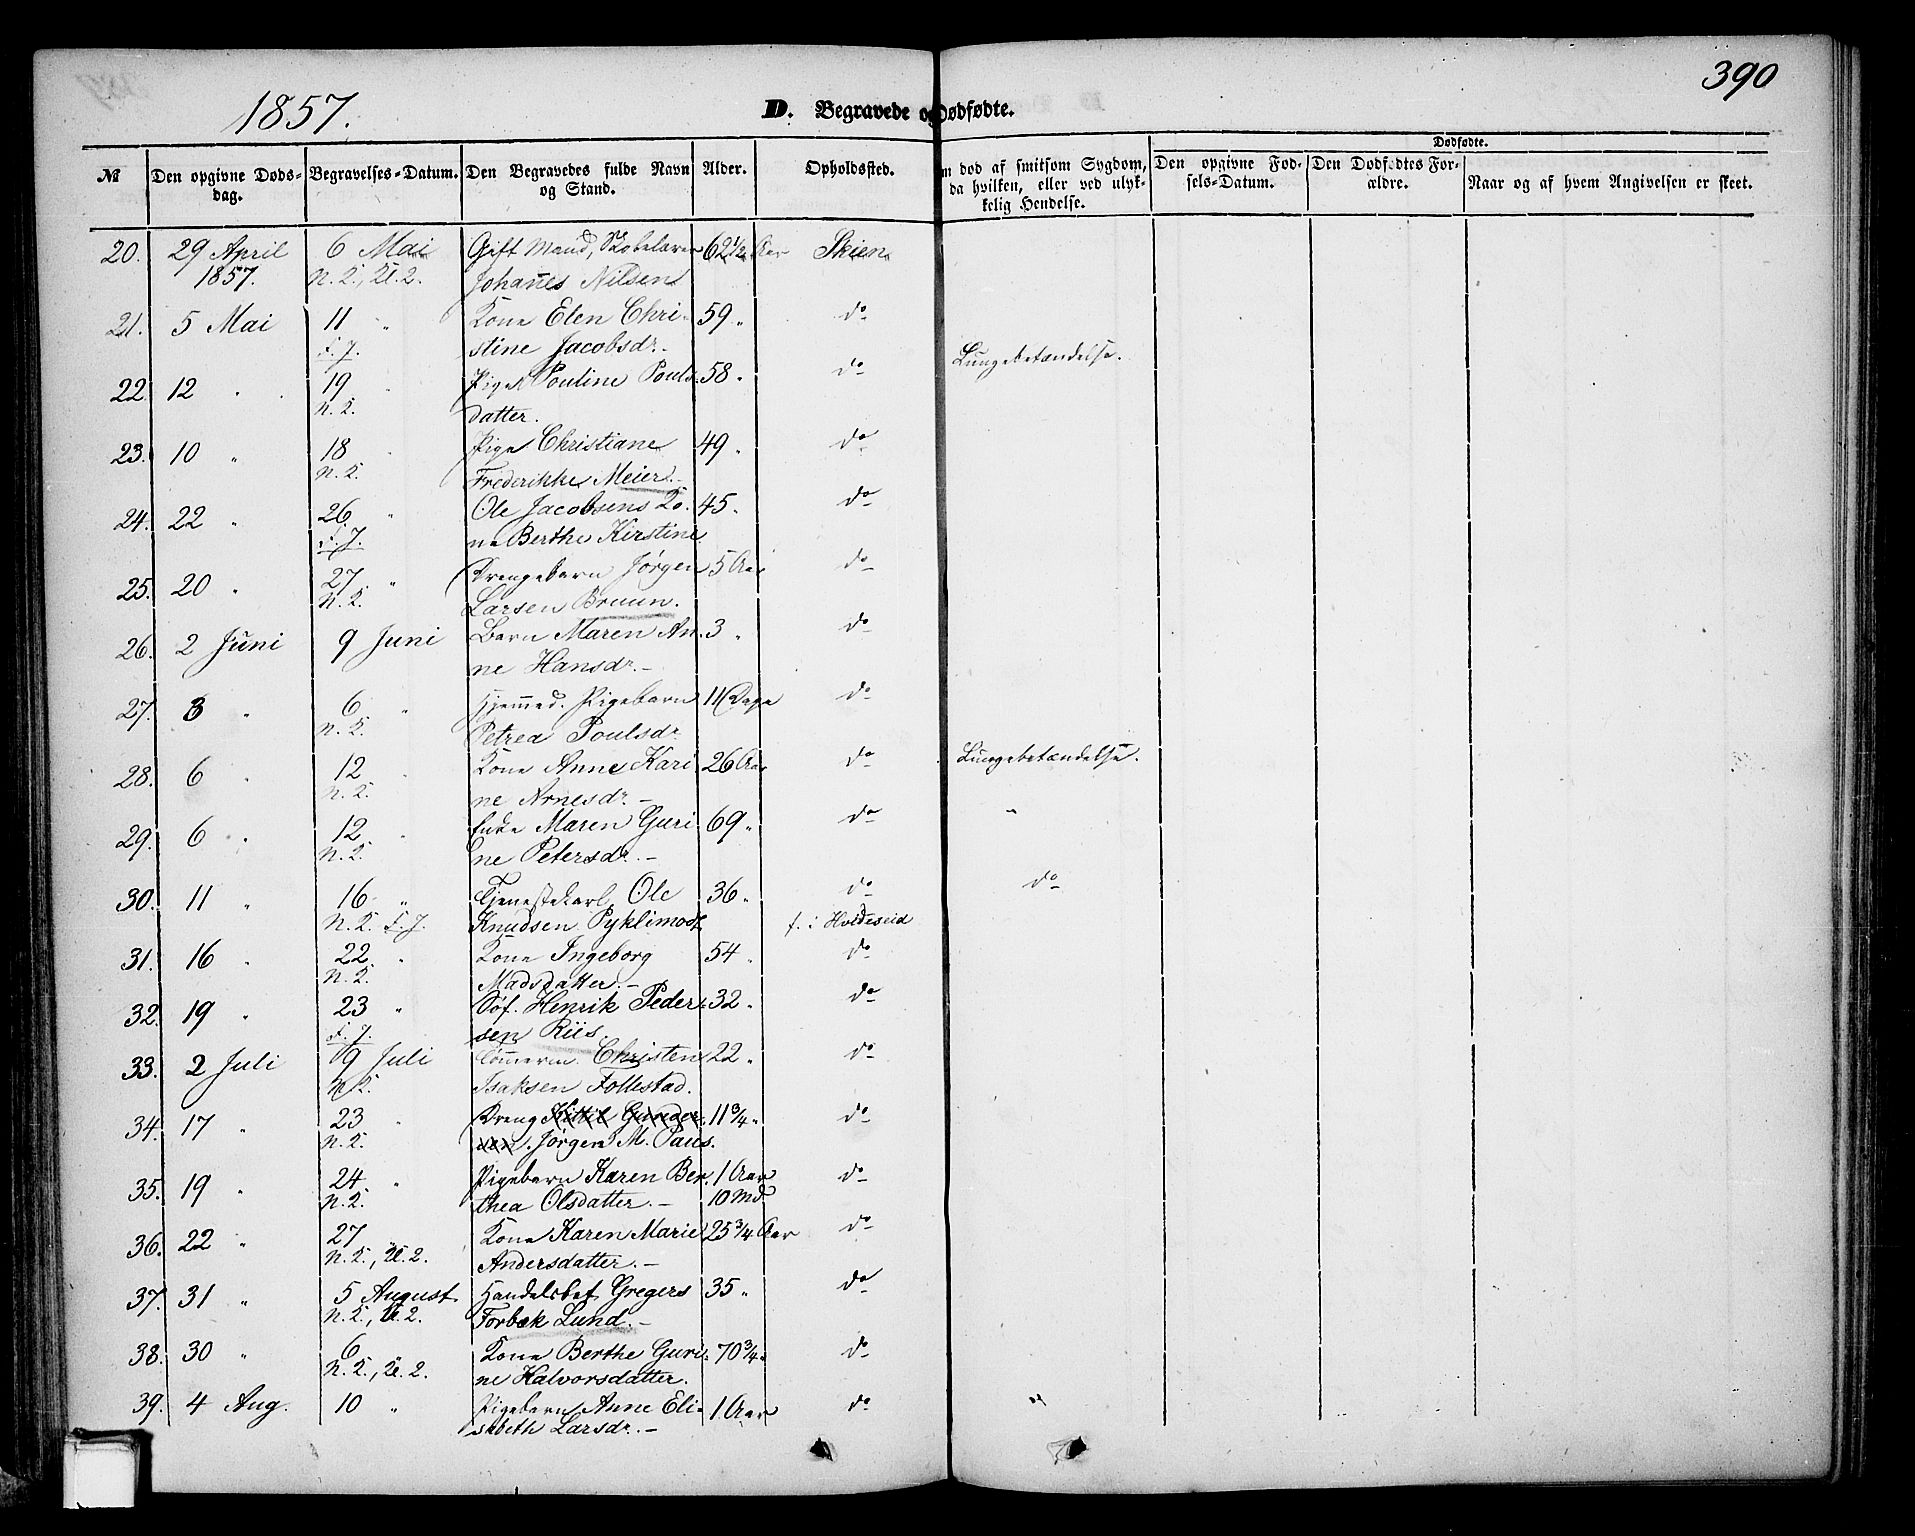 390
1857.
D. Begravede og Dødfødte.
Dødfødte.
№
Den opgivne Døds-
dag.
Begravelses-Datum.
Den Begravedes fulde Navn
og Stand.
Alder.
Opholdssted.
m død af smitsom Sygdom,
da hvilken, eller ved ulyk-
kelig Hendelse.
Den opgivne Fød-
sels-Datum.
Den Dødfødtes For-
ældre.
Naar og af hvem Angivelsen er skeet.
20. 29 April 6 Mai Gift Mand, 62½ Aar Skien
1857. N.K., U.2. Johannes Nilsen
21. 5 Mai 11 " Kone Elen Chri- 59 " do
F.J. stine Jacobsdr. -
Lungebetændelse.
22. 12 " 19 " Pige Pouline Pouls- 58 " do
N.K. datter.
23. 10 " 18 " Pige Christiane 49 " do
N.K. Frederikke Meier. -
24. 22 " 26 " Ole Jacobsens Ko- 45 " do
F.J. ne Berthe Kirstine
25. 20 " 27 " Drengebarn Jørgen 5 Aar do
N.K. Larsen Bruun.
26. 2 Juni 9 Juni Barn Maren An- 3 " do
ne Hansdr. -
27. 3 " 6 " Hjemmed. Pigebarn 11 Dage do
N.K. Petrea Poulsdr
28. 6 " 12 " Kone Anne Kari- 26 Aar do Lungebetændelse.
N.K. ne Arnesdr. -
29. 6 " 12 " Enke Maren Guri- 69 " do "
N.K. ne Petersdr. -
30. 11 " 16 " Tjenestekarl Ole 36 " do do
N.K. F.J. Knudsen Pyklimodt f. i Hvideseid
31. 16 " 22 " Kone Ingeborg 54 " do
N.K. Madsdatter. -
32. 19 " 23 " Søf. Henrik Peder- 32 " do
F.J. sen Riis.
33. 2 Juli 9 Juli Tømmerm. Christen 22 " do
N.K. Isaksen Follestad.
34. 17 " 23 " Dreng Kittil Gunder- 11¾ " do
N.K. sen. Jørgen M. Paus.
35. 19 " 24 " Pigebarn Karen Ber- 1 Aar do
N.K. thea Olsdatter. - 10 Md.
36. 22 " 27 " Kone Karen Marie 25¾ Aar do
N.K., U.2. Andersdatter. -
37. 31 " 5 August Handelsbet. Gregers 35 " do
N.K., U.2. Forbæk Lund. -
38. 30 " 6 " Kone Berthe Guri- 70¾ " do
N.K., U.2. ne Halvorsdatter.
39. 4 Aug. 10 " Pigebarn Anne Eli- 1 Aar do "
sabeth Larsdr. -